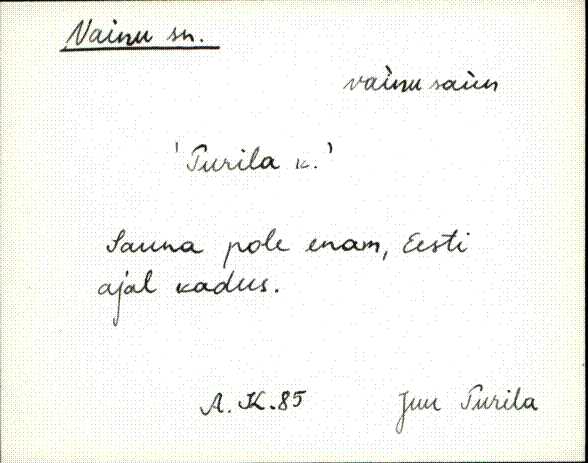 Vainu sn.
va͕i̮nu saùn
'Purila k.'
Sauna pole enam, Eesti
ajal kadus.
A. K. 85
Juu Purila